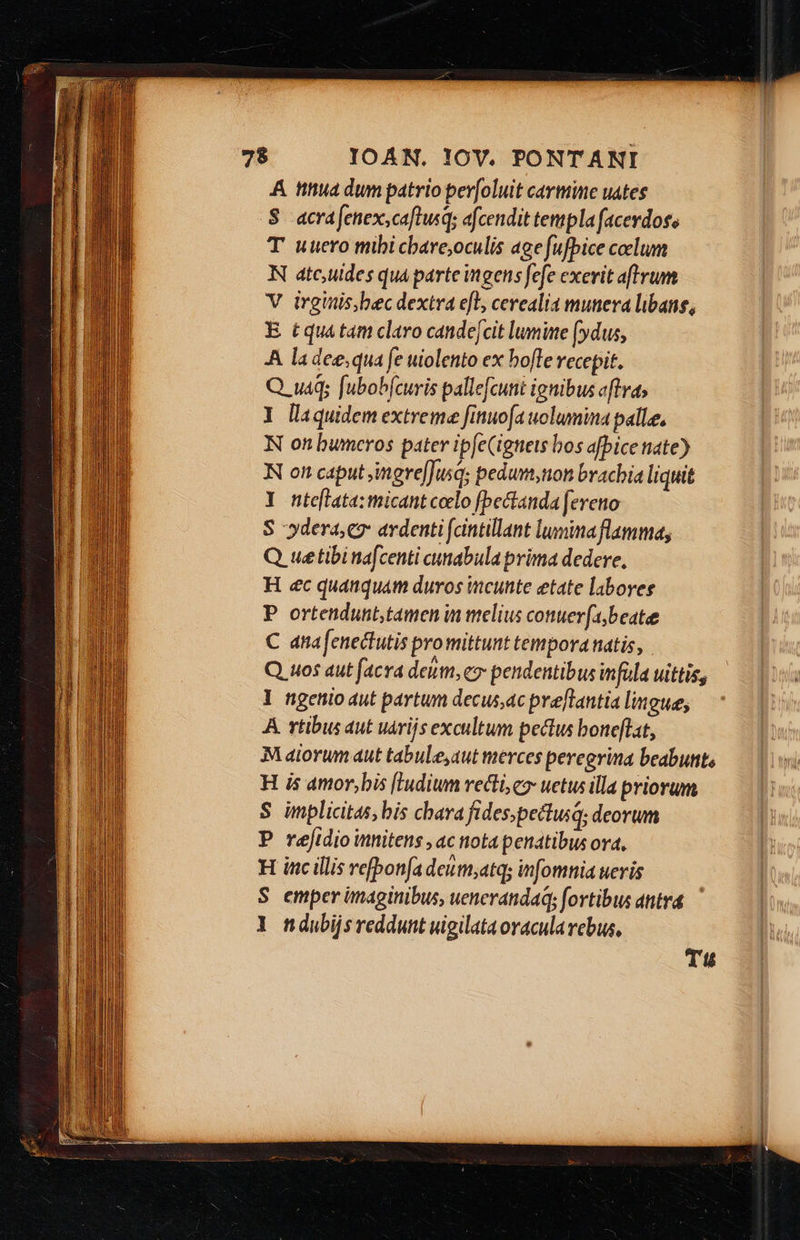 78 IOAN. IOV. PONTANI
A nnua dum patrio persoluit carmine uates
S acra senex, castusq; ascendit templa sacerdos.
T u uero mihi chare, oculis age suspice cœlum
N atc, uides qua parte ingens sese exerit astrum
V irginis, hæc dextra est, cerealia munera libans,
E t qua tam claro candescit lumine sydus,
A la deæ, qua se uiolento ex hoste recepit.
Q uaq; subobscuris pallescunt ignibus astra,
I lla quidem extremæ sinuosa uolumina pallæ.
N on humeros pater ipse (igneis hos aspice nate)
N on caput, ingressusq; pedum, non brachia liquit
I ntestata: micant cœlo spectanda sereno
S ydera, & ardenti scintillant lumina flamma,
Q uæ tibi nascenti cunabula prima dedere.
H æc quanquam duros incunte ætate labores
P ortendunt, tamen in melius conuersa, beatæ
C ana senectutis promittunt tempora natis,
Q uos aut sacra deûm, & pendentibus insula uittis,
I ngenio aut partum decus, ac præstantia linguæ,
A rtibus aut uarijs excultum pectus honestat,
M aiorum aut tabulæ, aut merces peregrina beabunt.
H is amor, his studium recti, & uetus illa priorum
S implicitas, his chara fides, pectusq; deorum
P ræsidio innitens, ac nota penatibus ora.
H inc illis responsa deûm, atq; insomnia ueris
S emper imaginibus, uenerandaq; fortibus antra
I n dubijs reddunt uigilata oracula rebus.
Tu